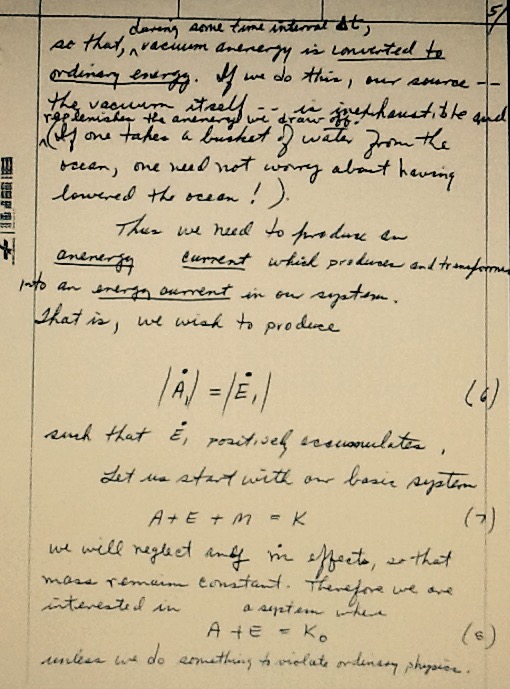 5/
during some time interval Δt,
so that, ^ vacuum anenergy is converted to
ordinary energy. If we do this, our source --
the vacuum itself -- is inexhaustible and
replenishes the anenergy we draw off.
^ (If one takes a bucket of water from the
ocean, one need not worry about having
lowered the ocean! ).
Thus we need to produce an
anenergy current which produces and transforms
into an energy current in our system.
That is, we wish to produce
|Ȧ₁| = |Ė₁| (6)
such that Ė₁ positively accumulates.
Let us start with our basic system
A + E + M = K (7)
we will neglect any ṁ effects, so that
mass remains constant. Therefore we are
interested in a system where
A + E = K₀ (8)
unless we do something to violate ordinary physics.